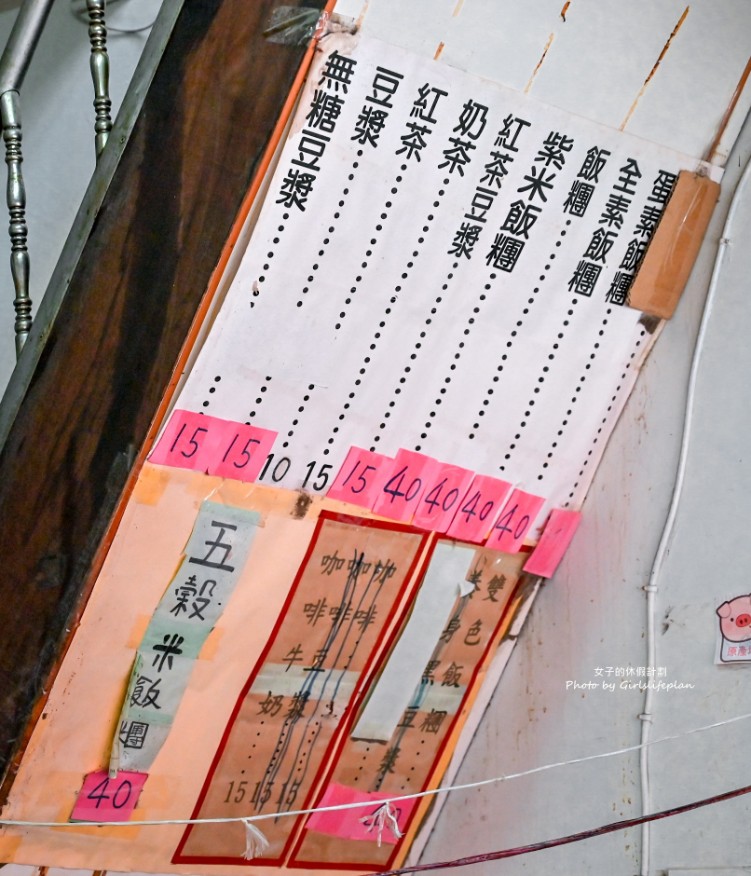 蛋素飯糰 40
全素飯糰 40
飯糰 40
紫米飯糰 40
紅茶豆漿 15
奶茶 15
紅茶 10
豆漿 15
無糖豆漿 15
雙色飯糰
身黑豆漿
咖啡 15
咖啡豆漿 15
咖啡牛奶 15
五穀米飯糰 40
原產
女子的休假計劃
Photo by Girlslifeplan